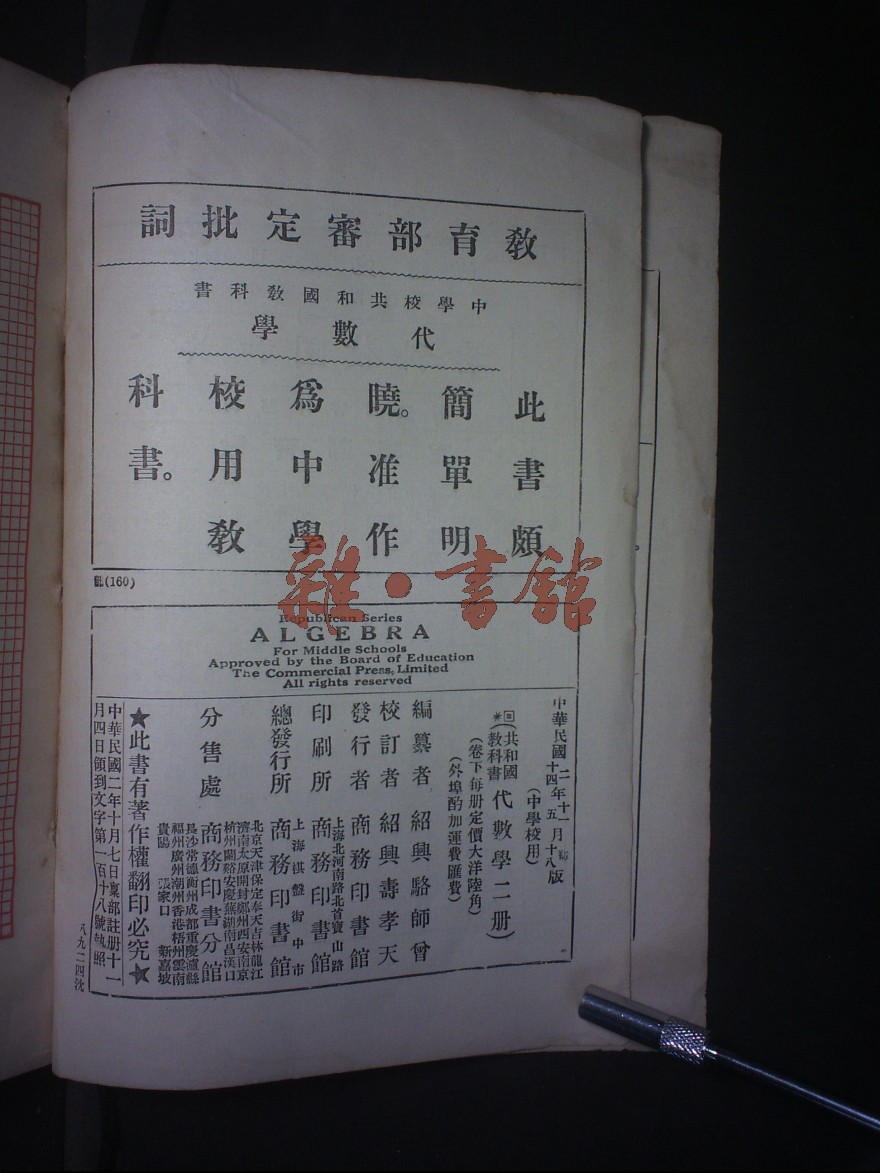 教育部審定批詞
中學校共和國教科書
代數學
此書頗
簡單明
曉。准作
爲中學
校用教
科書。
(160)
雜·書館
Republican Series
ALGEBRA
For Middle Schools
Approved by the Board of Education
The Commercial Press, Limited
All rights reserved
中華民國二年十一月
十四年五月十八版
(中學校用)
(共和國教科書)代數學二册
(卷下每册定價大洋陸角)
(外埠酌加運費匯費)
編纂者 紹興駱師曾
校訂者 紹興壽孝天
發行者 商務印書館
上海北河南路北首寶山路
印刷所 商務印書館
上海棋盤街中市
總發行所 商務印書館
北京天津保定奉天吉林龍江
濟南太原開封鄭州西安南京
杭州蘭谿安慶蕪湖南昌漢口
分售處 商務印書分館
長沙常德衡州成都重慶瀘縣
福州廣州潮州香港梧州雲南
貴陽 張家口 新嘉坡
★此書有著作權翻印必究★
中華民國二年十月七日稟部註册十一
月四日領到文字第一百十八號執照
八九二四沈